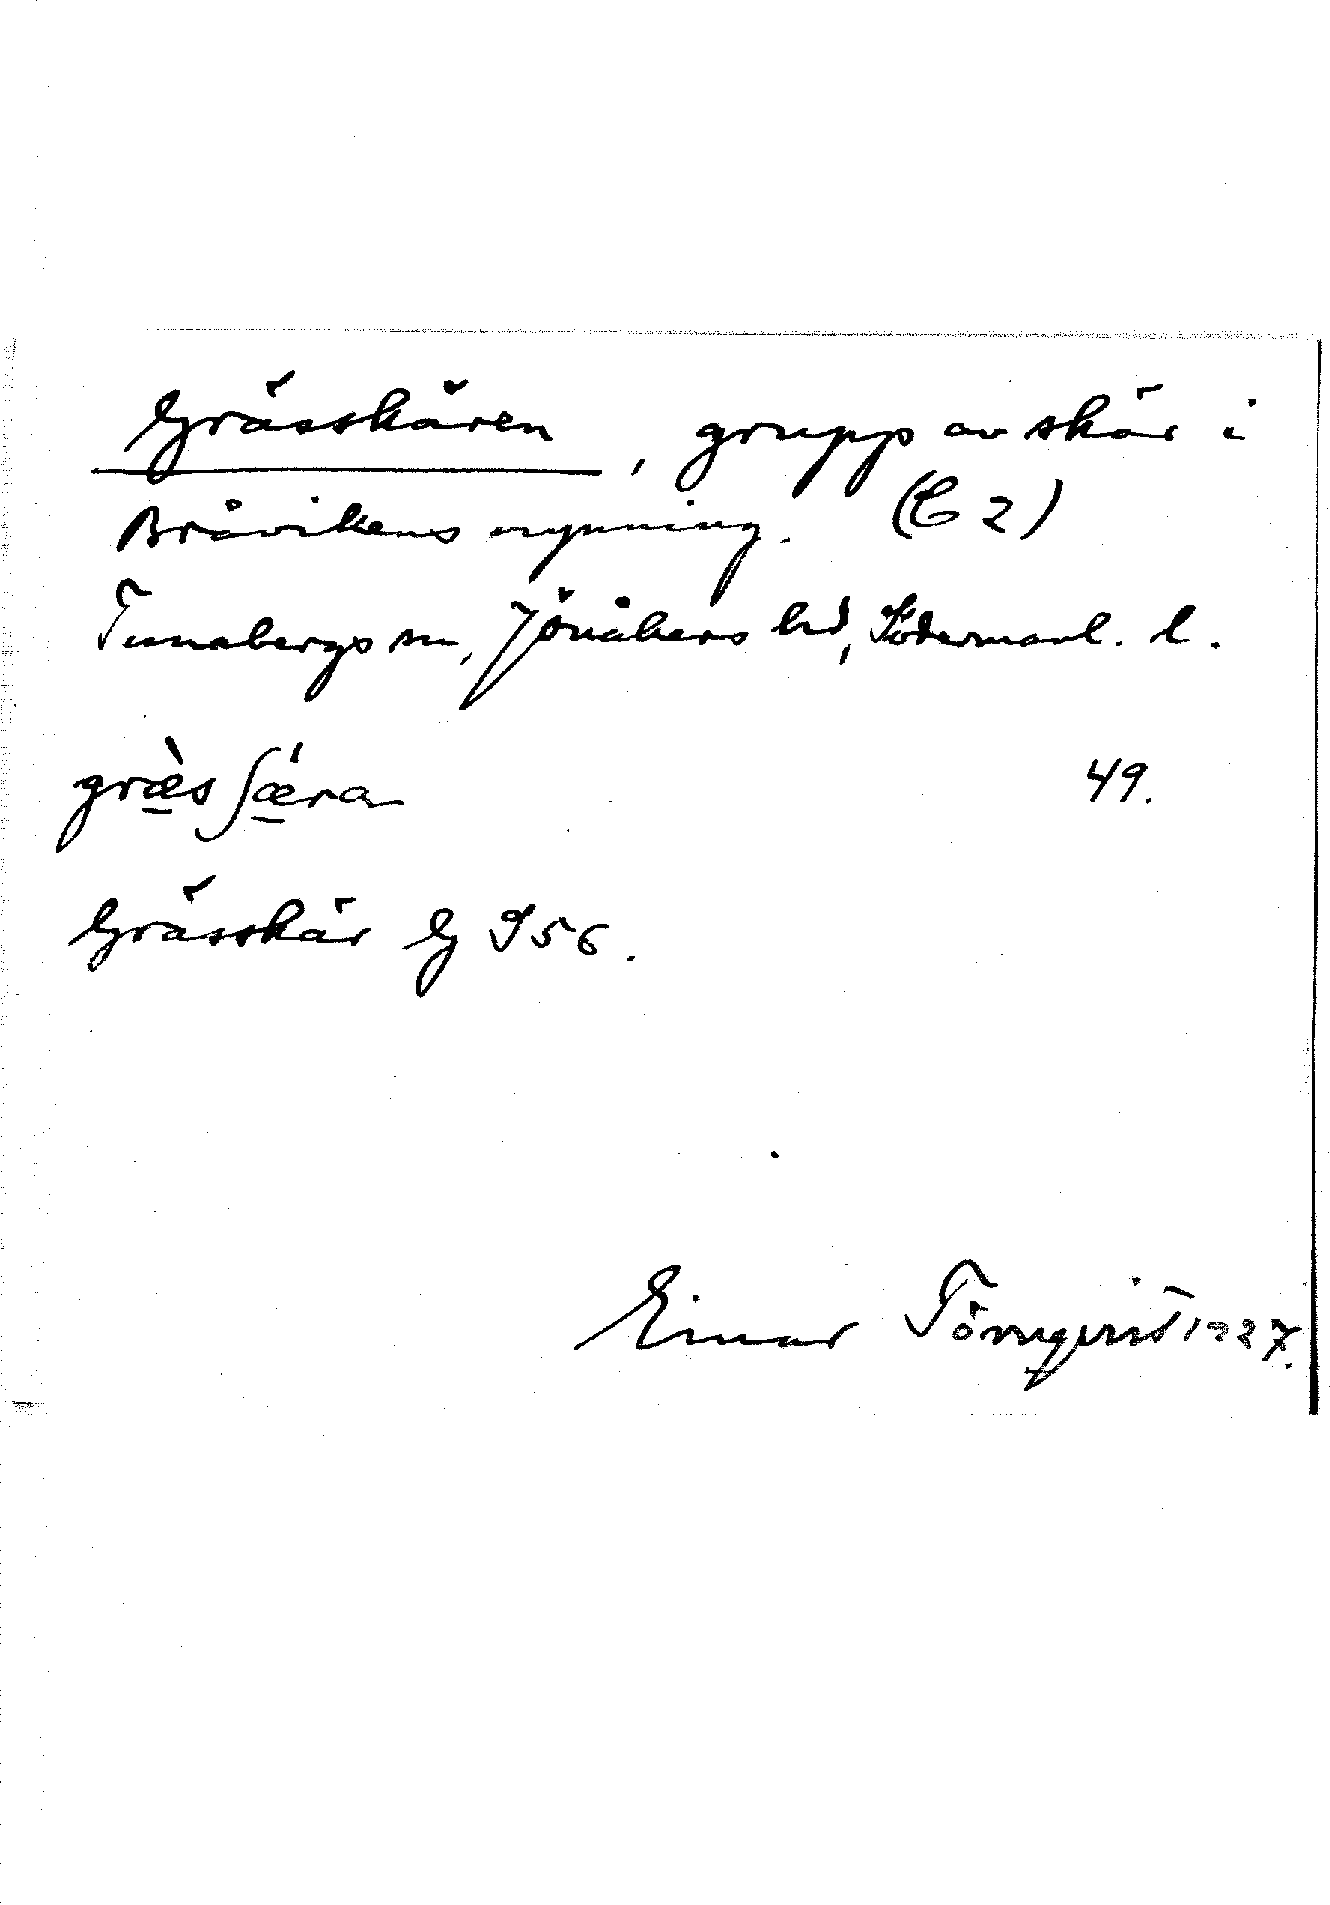 Grässkären, grupp av skär i
Bråvikens mynning. (C 2)
Tunabergs sn, Jönåkers hd, Södermanl. l.
græ̀s ʃǽra 49.
Grässkär G J56.
Einar Törnqvist 1927.